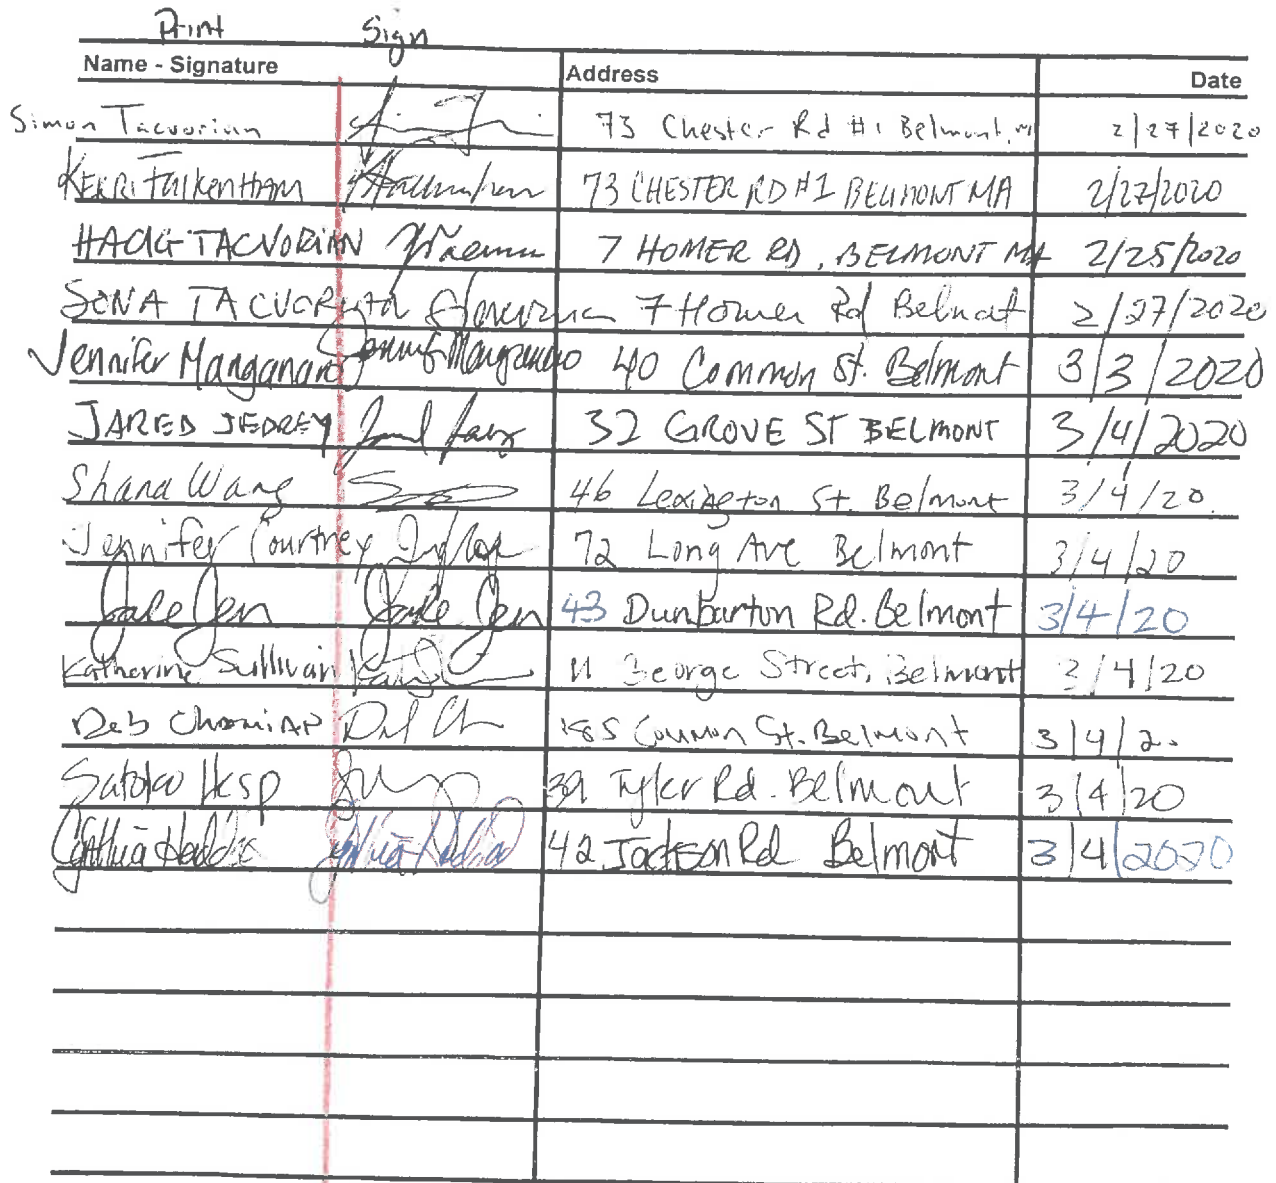 Print Sign
Name - Signature Address Date
Simon Tacvorian 73 Chester Rd #1 Belmont, 2/27/2020
KERRI FALKENHAM 73 CHESTER RD #1 BELMONT MA 2/27/2020
HAOIG TACVORIAN 7 HOMER RD, BELMONT MA 2/25/2020
SONA TACVORYAN 7 Homer Rd Belmont 2/27/2020
Jennifer Manganaro Jennifer Manganaro 40 Common St. Belmont 3/3/2020
JARED JEDREY 32 GROVE ST BELMONT 3/4/2020
Shana Wang 46 Lexington St. Belmont 3/4/20
Jennifer Courtney 72 Long Ave Belmont 3/4/20
Jen Jen 43 Dunbarton Rd. Belmont 3/4/20
Katherine Sullivan 11 George Street, Belmont 3/4/20
Deb 185 Common St. Belmont 3/4/20
39 Tyler Rd. Belmont 3/4/20
Cynthia 42 Jackson Rd Belmont 3/4/2020